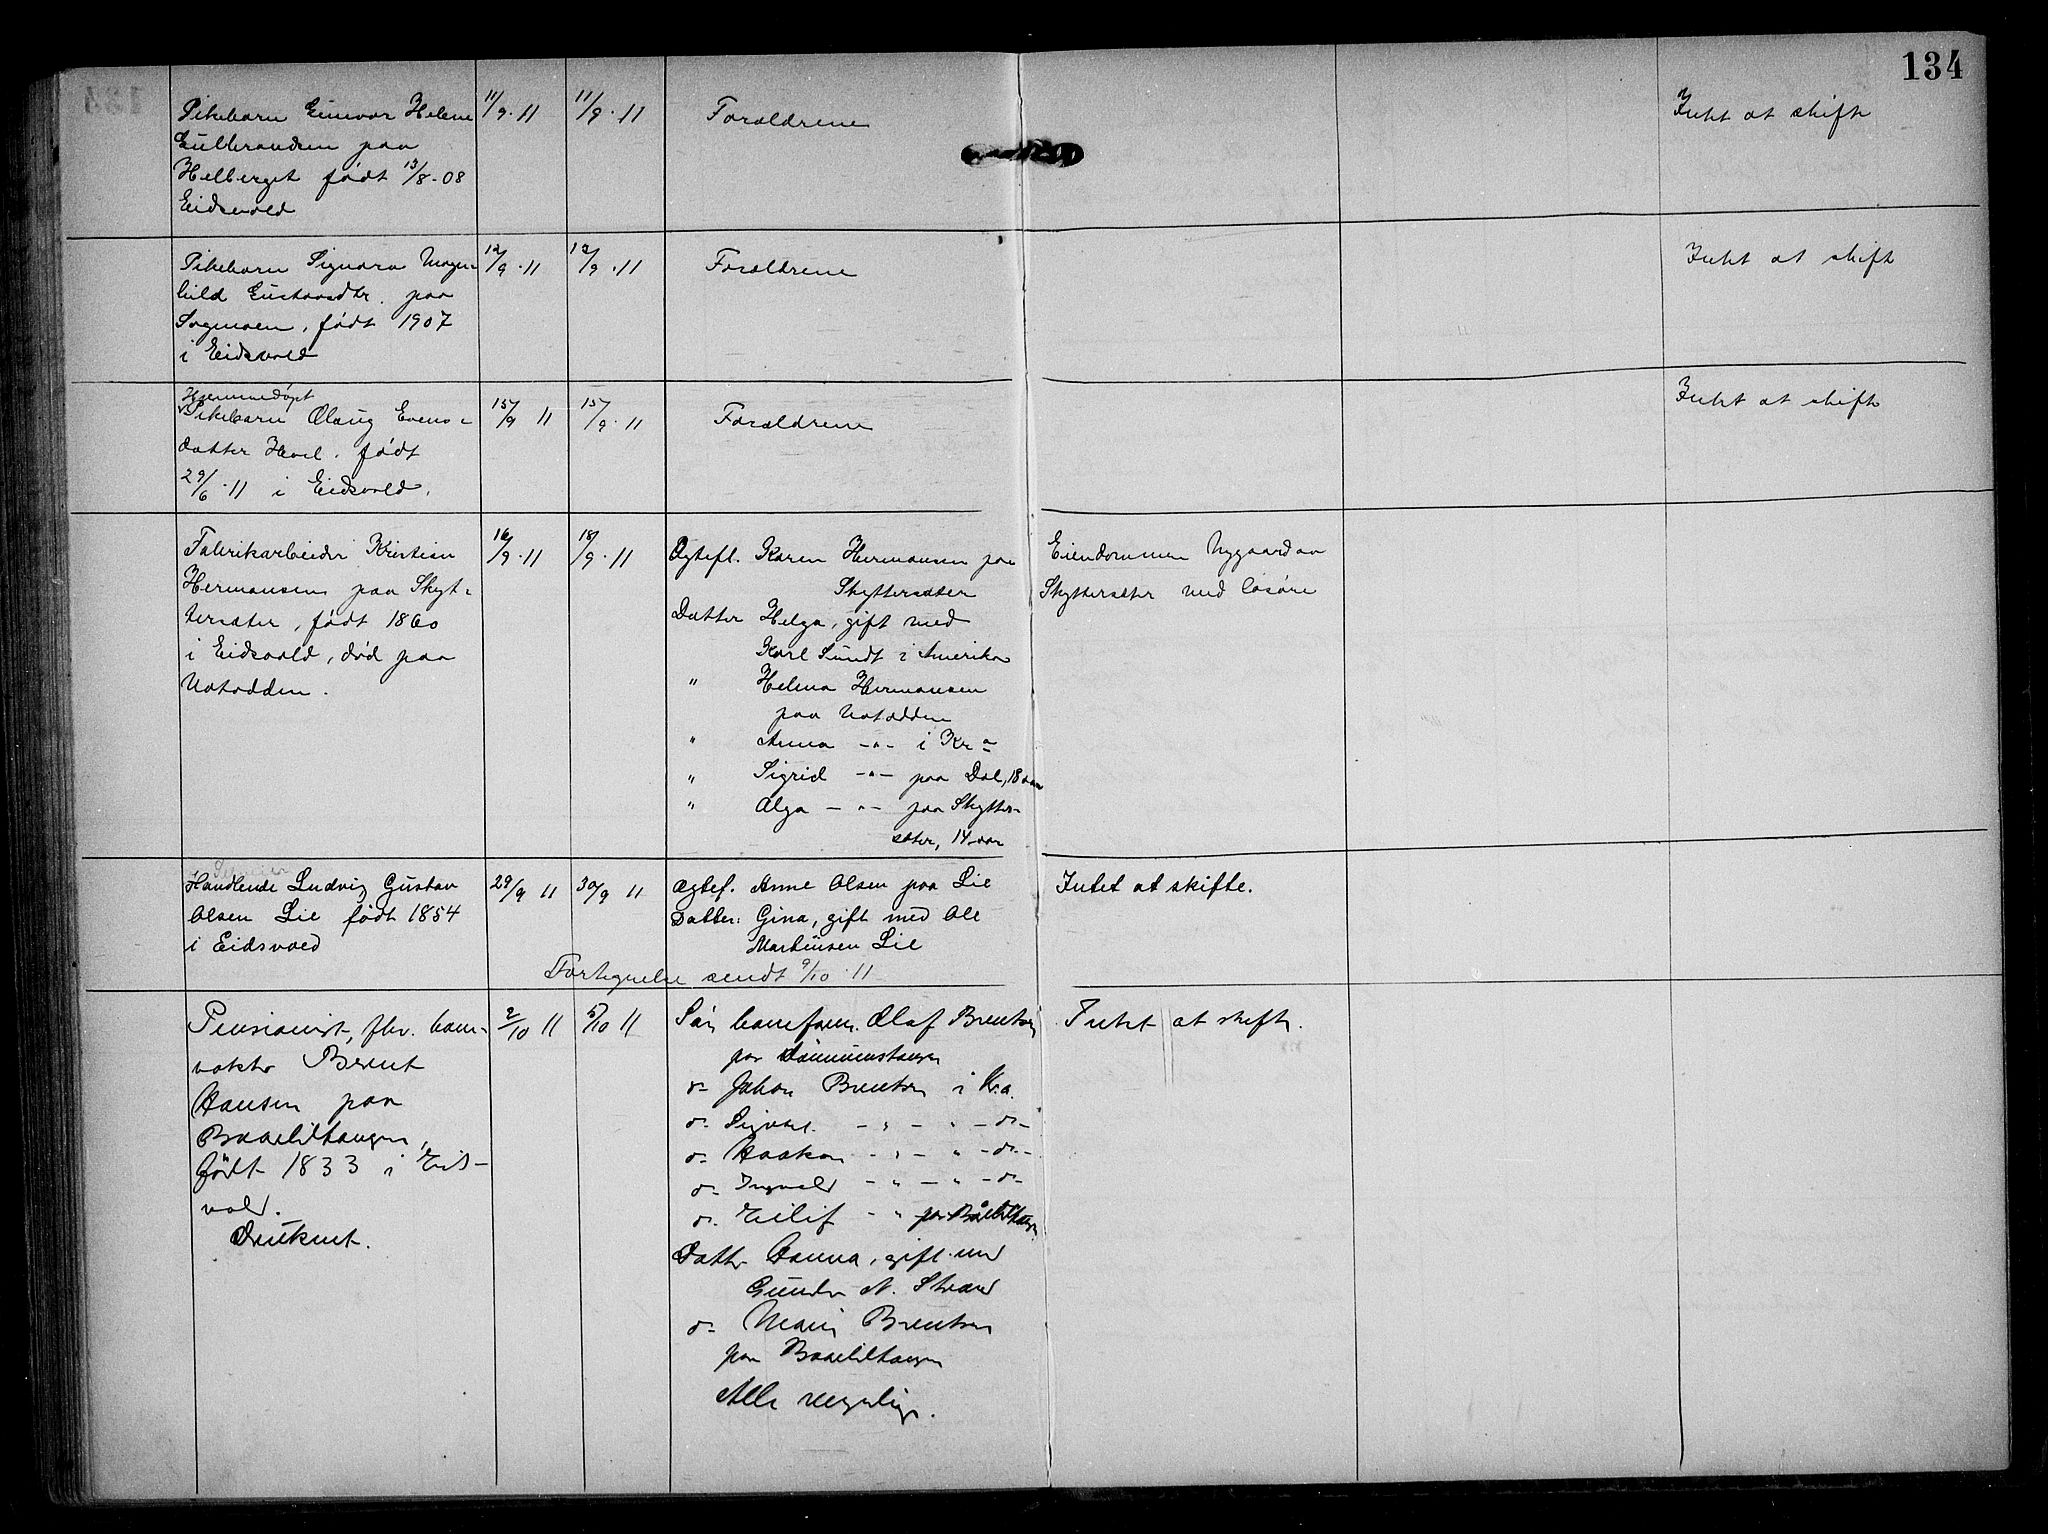 134
Pikebarn Gunvor Helene 11/9·11 11/9·11 Forældrene Intet at skifte
Gulbrandsen paa
Helberget født 13/8-08
Eidsvold
Pikebarn Signora Magn- 12/9·11 12/9·11 Forældrene Intet at skifte
hild Gustavsdtr. paa
Sogmoen, født 1907
i Eidsvold
Hjemmedøpt
Pikebarn Olaug Evens- 15/9 11 15/9·11 Forældrene Intet at skifte
datter Hovl. født
29/6·11 i Eidsvold.
Fabrikarbeider Kristian 16/9·11 18/9·11 Egtef. Karen Hermansen paa Eiendommen Nygaard av
Hermansen paa Skyt- Skyttersæter Skyttersæter med løsøre
tersæter, født 1860 Datter Helga, gift med
i Eidsvold, død paa Karl Sundt i Amerika
Notodden. " Helena Hermansen
paa Notodden
" Anna -"- i Kra
" Sigrid -"- paa Dal, 18 aar
" Olga -"- paa Skytter-
sæter, 14 aar
Handlende Ludvig Gustav 29/9 11 30/9 11 Egtef. Anne Olsen paa Lie Intet at skifte.
Olsen Lie født 1854 Datter: Gina, gift med Ole
i Eidsvold Martinsen Lie
Fortegnelse sendt 9/10·11
Pensionist, fhv. ban- 2/10 11 5/10 11 Søn baneform. Olaf Brentsen Intet at skifte.
vokter Bernt paa
Hansen paa do- Johan Brentsen i Kra.
Baaelitangen, do- Sigvart -"- " -do-
født 1833 i Eids- do- Haakon -"- " -do-
vold. do- Ingvald -"- " -do-
Druknet. do- Eilif -"- paa Båelitangen
Datter Hanna, gift med
Gunder N. Strand
do- Marie Brentsen
paa Baaelitangen
Alle myndige.